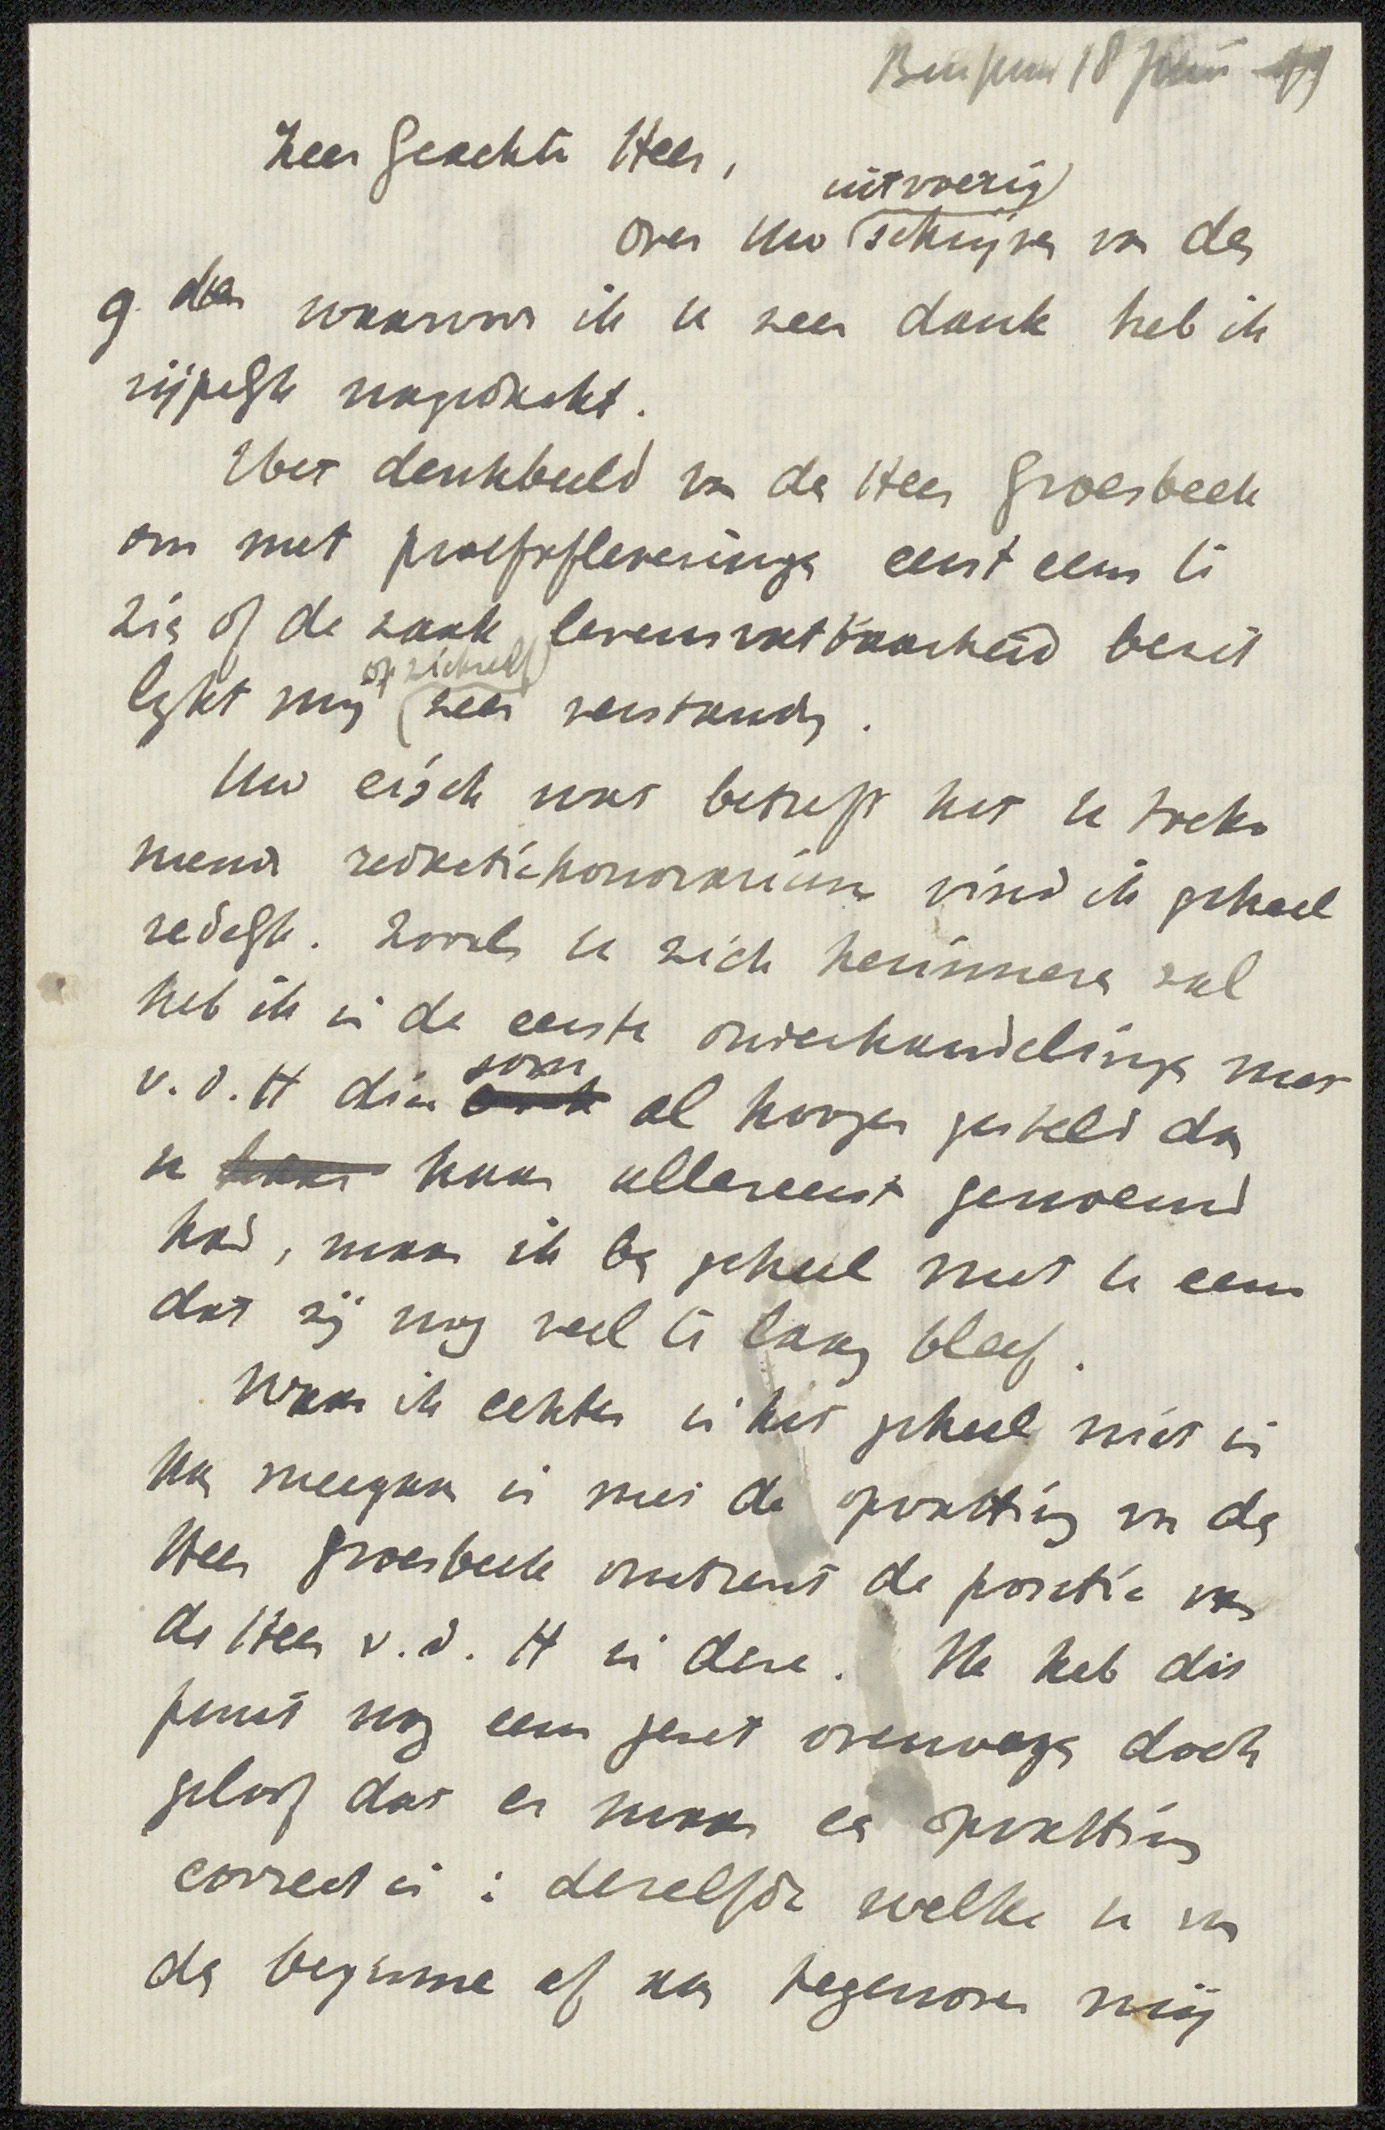 Bussum 18 Juni 99
Zeer Geachte Heer,
uitvoerig
over Uw schrijven van den
9 den waarvoor ik u zeer dank heb ik
rijpelijk nagedacht.
Het denkbeeld van den Heer Groesbeek
om met proefafleveringen eerst eens te
zien of de zaak levensvatbaarheid bezit
op zichzelf
lijkt mij zeer verstandig.
Uw eisch wat betreft het u toeko
mend redactiehonorarium vind ik geheel
redelijk. Zooals u zich herinneren zal
heb ik in de eerste onderhandelingen met
som
v.d.H die al hooger gesteld dan
u haar haar allereerst genoemd
had, maar ik ben geheel met u eens
dat zij nog veel te laag bleef.
Waar ik echter in het geheel niet in
kan meegaan is met de opvatting van den
Heer Groesbeek omtrent de positie van
de Heer v.d.H in deze. Ik heb dit
punt nog eens gezet overwogen doch
geloof dat er maar een opvatting
correct is: dezelfde welke u van
den beginne af aan tegenover mij